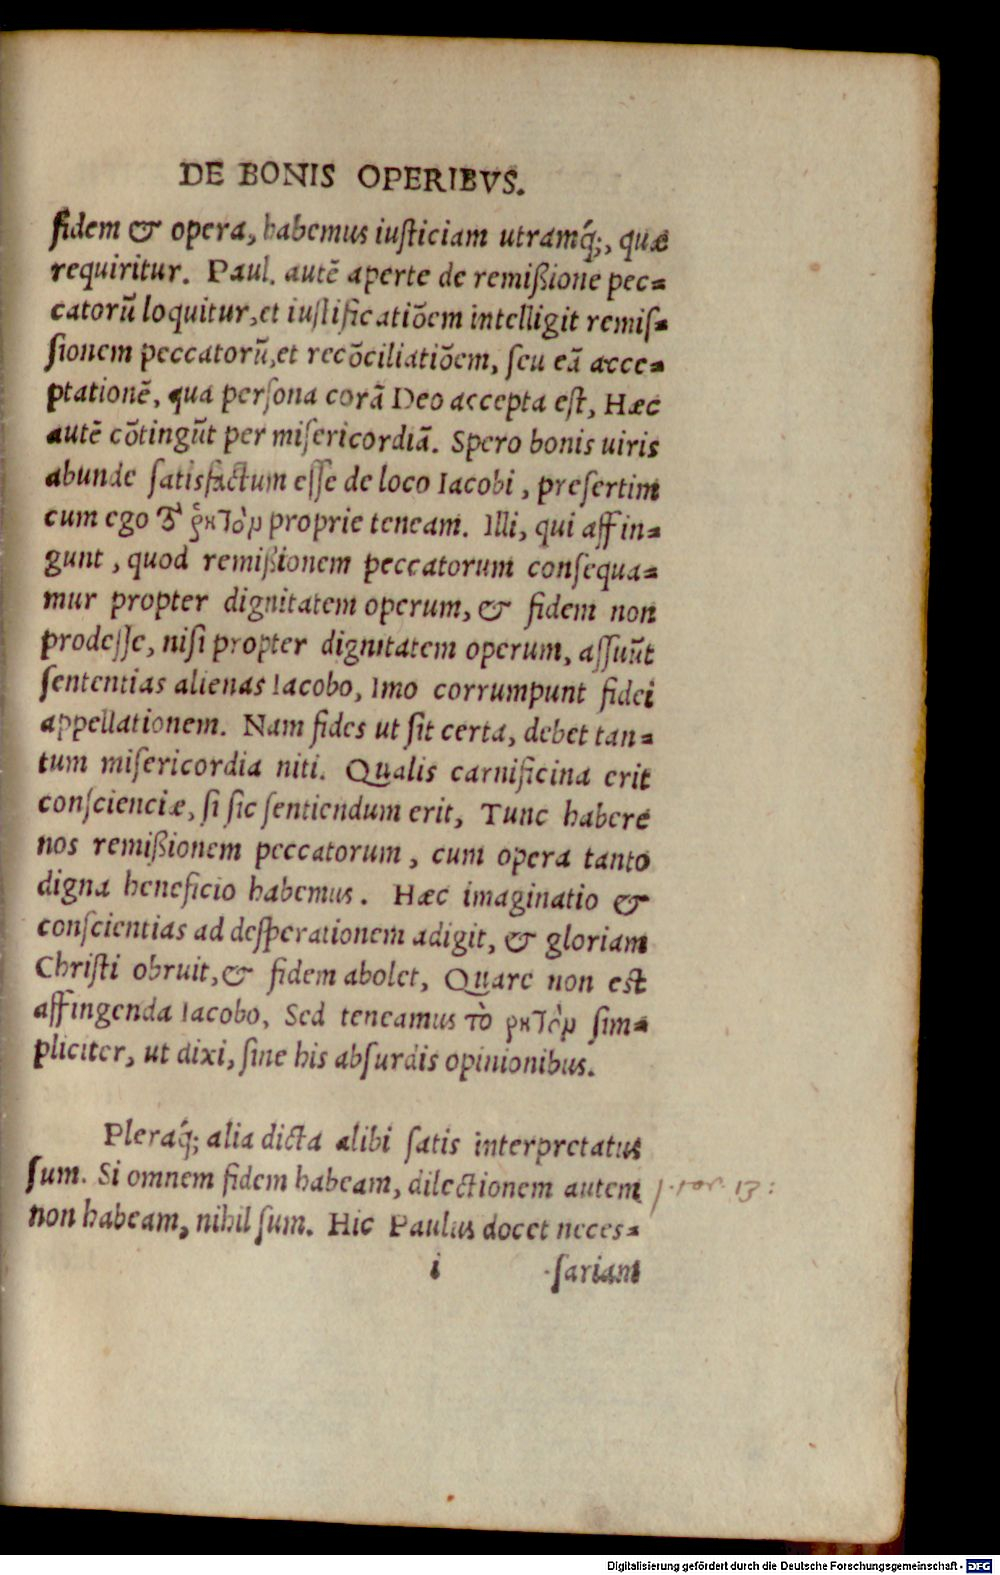 DE BONIS OPERIBVS.
fidem & opera, habemus iuſticiam utramq́;, quæ
requiritur. Paul. autē aperte de remißione pec=
catorū loquitur, et iuſtificatiōem intelligit remiſ=
ſionem peccatorū, et recōciliatiōem, ſeu eā acce=
ptationē, qua perſona corā Deo accepta eſt, Hæc
autē cōtingūt per miſericordiā. Spero bonis uiris
abunde ſatisfactum eſſe de loco Iacobi, preſertim
cum ego τὸ ῥητὸν proprie teneam. Illi, qui affin=
gunt, quod remißionem peccatorum conſequa=
mur propter dignitatem operum, & fidem non
prodeſſe, niſi propter dignitatem operum, aſſuūt
ſententias alienas Iacobo, Imo corrumpunt fidei
appellationem. Nam fides ut ſit certa, debet tan=
tum miſericordia niti. Qualis carnificina erit
conſcienciæ, ſi ſic ſentiendum erit, Tunc habere
nos remißionem peccatorum, cum opera tanto
digna beneficio habemus. Hæc imaginatio &
conſcientias ad deſperationem adigit, & gloriam
Chriſti obruit, & fidem abolet, Quare non est
affingenda Iacobo, Sed teneamus τὸ ῥητὸν ſim=
pliciter, ut dixi, ſine his abſurdis opinionibus.
Pleraq́; alia dicta alibi ſatis interpretatus
ſum. Si omnem fidem habeam, dilectionem autem 1. cor. 13:
non habeam, nihil ſum. Hic Paulus docet neces=
i ſariam
Digitalisierung gefördert durch die Deutsche Forschungsgemeinschaft - DFG